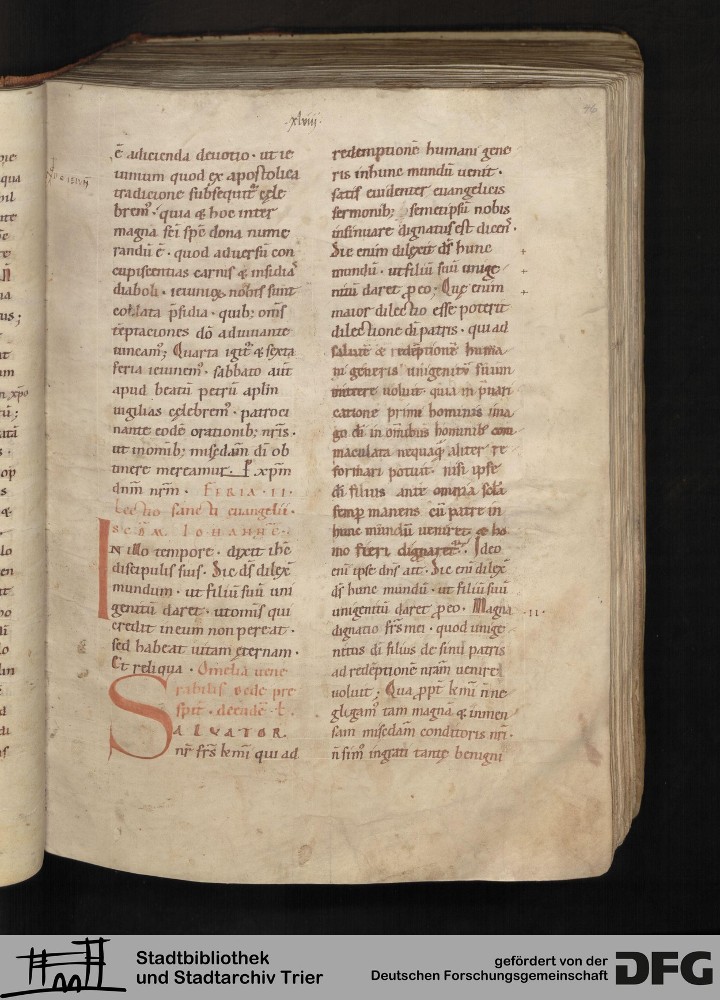 .xlviii.
46
ē adicienda deuotio · ut ie
iunium quod ex apostolica
tradicione subsequit᷑ cele
brem᷒ · quia & hoc inter
magna sc̄i sp̄s dona nume
randū ē · quod aduersū con
cupiscentias carnis & insidias
diaboli · ieiunioꝝ nobis sunt
collata p̄sidia · quib; om̄s
tēptaciones dō adiuuante
uincam᷒; Quarta igit᷑ & sexta
feria ieiunem᷒ · sabbato aūt
apud beatū petrū apl̄m
uigilias celebrem᷒ · patroci
nante eodē orationib; nr̄is ·
ut in omīb; misc̄dam dī ob
tinere mereamur · P̄ xp̄m
dn̄m nr̄m · FERIA · II ·
Lectio sancti euangelii ·
SCD̄M IOHANNĒ ·
IN illo tempore · dixit ihc̄
discipulis suis · Sic dс̄ dilex̄
mundum · ut filiū suū uni
genitū daret · ut omīs qui
credit in eum non pereat ·
sed habeat uitam eternam ·
Et reliqua · Omelia uene
rabilis bede pre
sƀit · de eadē ł ·
SALVATOR
nr̄ fr̄s km̄i qui ad
redemptionē humani gene
ris in hunc mundū uenit ·
satis euidenter euangelicis
sermonib; semetipsū nobis
insinuare dignatus est dicens ·
Sic enim dilexit dс̄ hunc
mundū · ut filiū suū unige
nitū daret ꝓ eo; Que enim
maior dilectio esse poterit
dilectione dī patris · qui ad
salutē & redēptionē huma
ni generis unigenitū suum
mittere uoluit · quia in p̄uari
catione primi hominis ima
go dī in omībus hominib᷒ com
maculata nequaq̄ aliter re
formari potuit · nisi ipse
dī filius ante omnia scl̄a
semp manens cū patre in
hunc mūndū ueniret & ho
mo fieri dignaret᷑ · Ideo
eni ipse dn̄s ait · Sic enī dilex̄
dс̄ hunc mundū · ut filiū suū
unigenitū daret ꝓ eo · Magna
· II ·
dignatio fr̄s mei · quod unige
nitus dī filius de sinu patris
ad redēptionē nr̄am uenire
uoluit; Qua ꝓpt̄ km̄i n̄ ne
gligam᷒ tam magnā & inmen
sam misc̄dam conditoris nr̄i ·
n̄ sim᷒ ingrati tante benigni
Stadtbibliothek
und Stadtarchiv Trier
gefördert von der
Deutschen Forschungsgemeinschaft
DFG